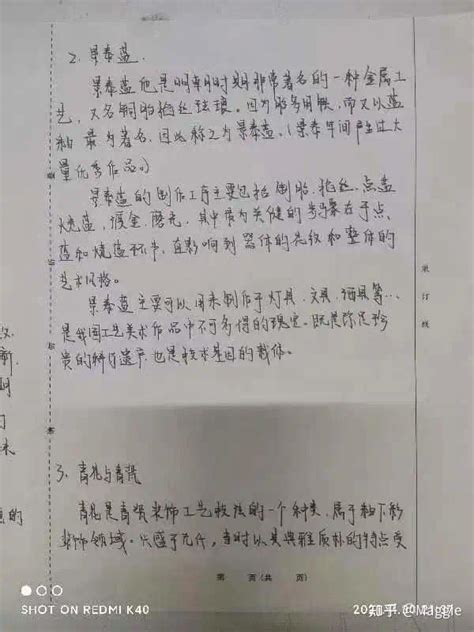 2. 景泰蓝.
景泰蓝他是明朝时期非常著名的一种金属工
艺, 又名铜胎掐丝珐琅。因为明朝, 而又以蓝
釉最为著名, 因此称之为景泰蓝. (景泰年间产生过大
量优秀作品。)
景泰蓝的制作工序主要包括制胎、掐丝、点蓝
烧蓝, 镀金. 磨光. 其中最为关键的步骤在于点
蓝和烧蓝环节, 直影响到器体的花纹和整体的
艺术风格。
景泰蓝主要可以用来制作于灯具、文具、酒具等...
是我国工艺美术作品中不可多得的瑰宝。既是
贵的遗产, 也是技术基因的载体。
3、青花与青瓷
青花是青瓷装饰工艺技法的一个种类. 属于釉下彩
装饰领域. 兴盛于元代, 当时以其典雅质朴的特点受
装订线
第 页(共 页)
SHOT ON REDMI K40
知乎 @Maggie